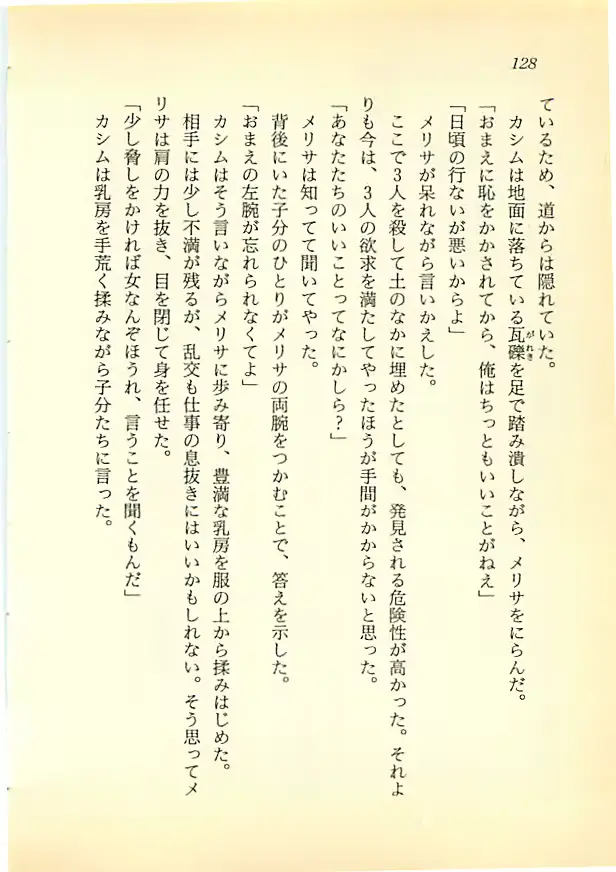 128
ているため、道からは隠れていた。
カシムは地面に落ちている瓦礫を足で踏み潰しながら、メリサをにらんだ。
がれき
「おまえに恥をかかされてから、俺はちっともいいことがねえ」
「日頃の行ないが悪いからよ」
メリサが呆れながら言いかえした。
ここで3人を殺して土のなかに埋めたとしても、発見される危険性が高かった。それよ
りも今は、3人の欲求を満たしてやったほうが手間がかからないと思った。
「あなたたちのいいことってなにかしら?」
メリサは知ってて聞いてやった。
背後にいた子分のひとりがメリサの両腕をつかむことで、答えを示した。
「おまえの左腕が忘れられなくてよ」
カシムはそう言いながらメリサに歩み寄り、豊満な乳房を服の上から揉みはじめた。
相手には少し不満が残るが、乱交も仕事の息抜きにはいいかもしれない。そう思ってメ
リサは肩の力を抜き、目を閉じて身を任せた。
「少し脅しをかければ女なんぞほうれ、言うことを聞くもんだ」
カシムは乳房を手荒く揉みながら子分たちに言った。